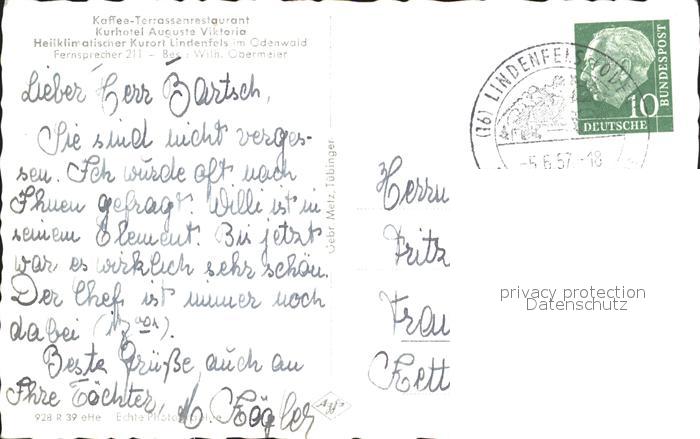 Kaffee-Terrassenrestaurant
Kurhotel Auguste Viktoria
Heilklimatischer Kurort Lindenfels im Odenwald
Fernsprecher 211 - Bes.: Wilh. Obermeier
Lieber Herr Bartsch,
Sie sind nicht verges-
sen. Ich wurde oft nach
Ihnen gefragt. Willi ist in
seinem Element. Bis jetzt
war es wirklich sehr schön.
Der Chef ist immer noch
dabei
Beste Grüße, auch an
Ihre Töchter,
928 R 39 eHe Echte
Gebr. Metz, Tübingen
(16) LINDENFELS
-5.6.57.-18
10
DEUTSCHE
BUNDESPOST
Herrn
Fritz
Frau
Kett
privacy protection
Datenschutz